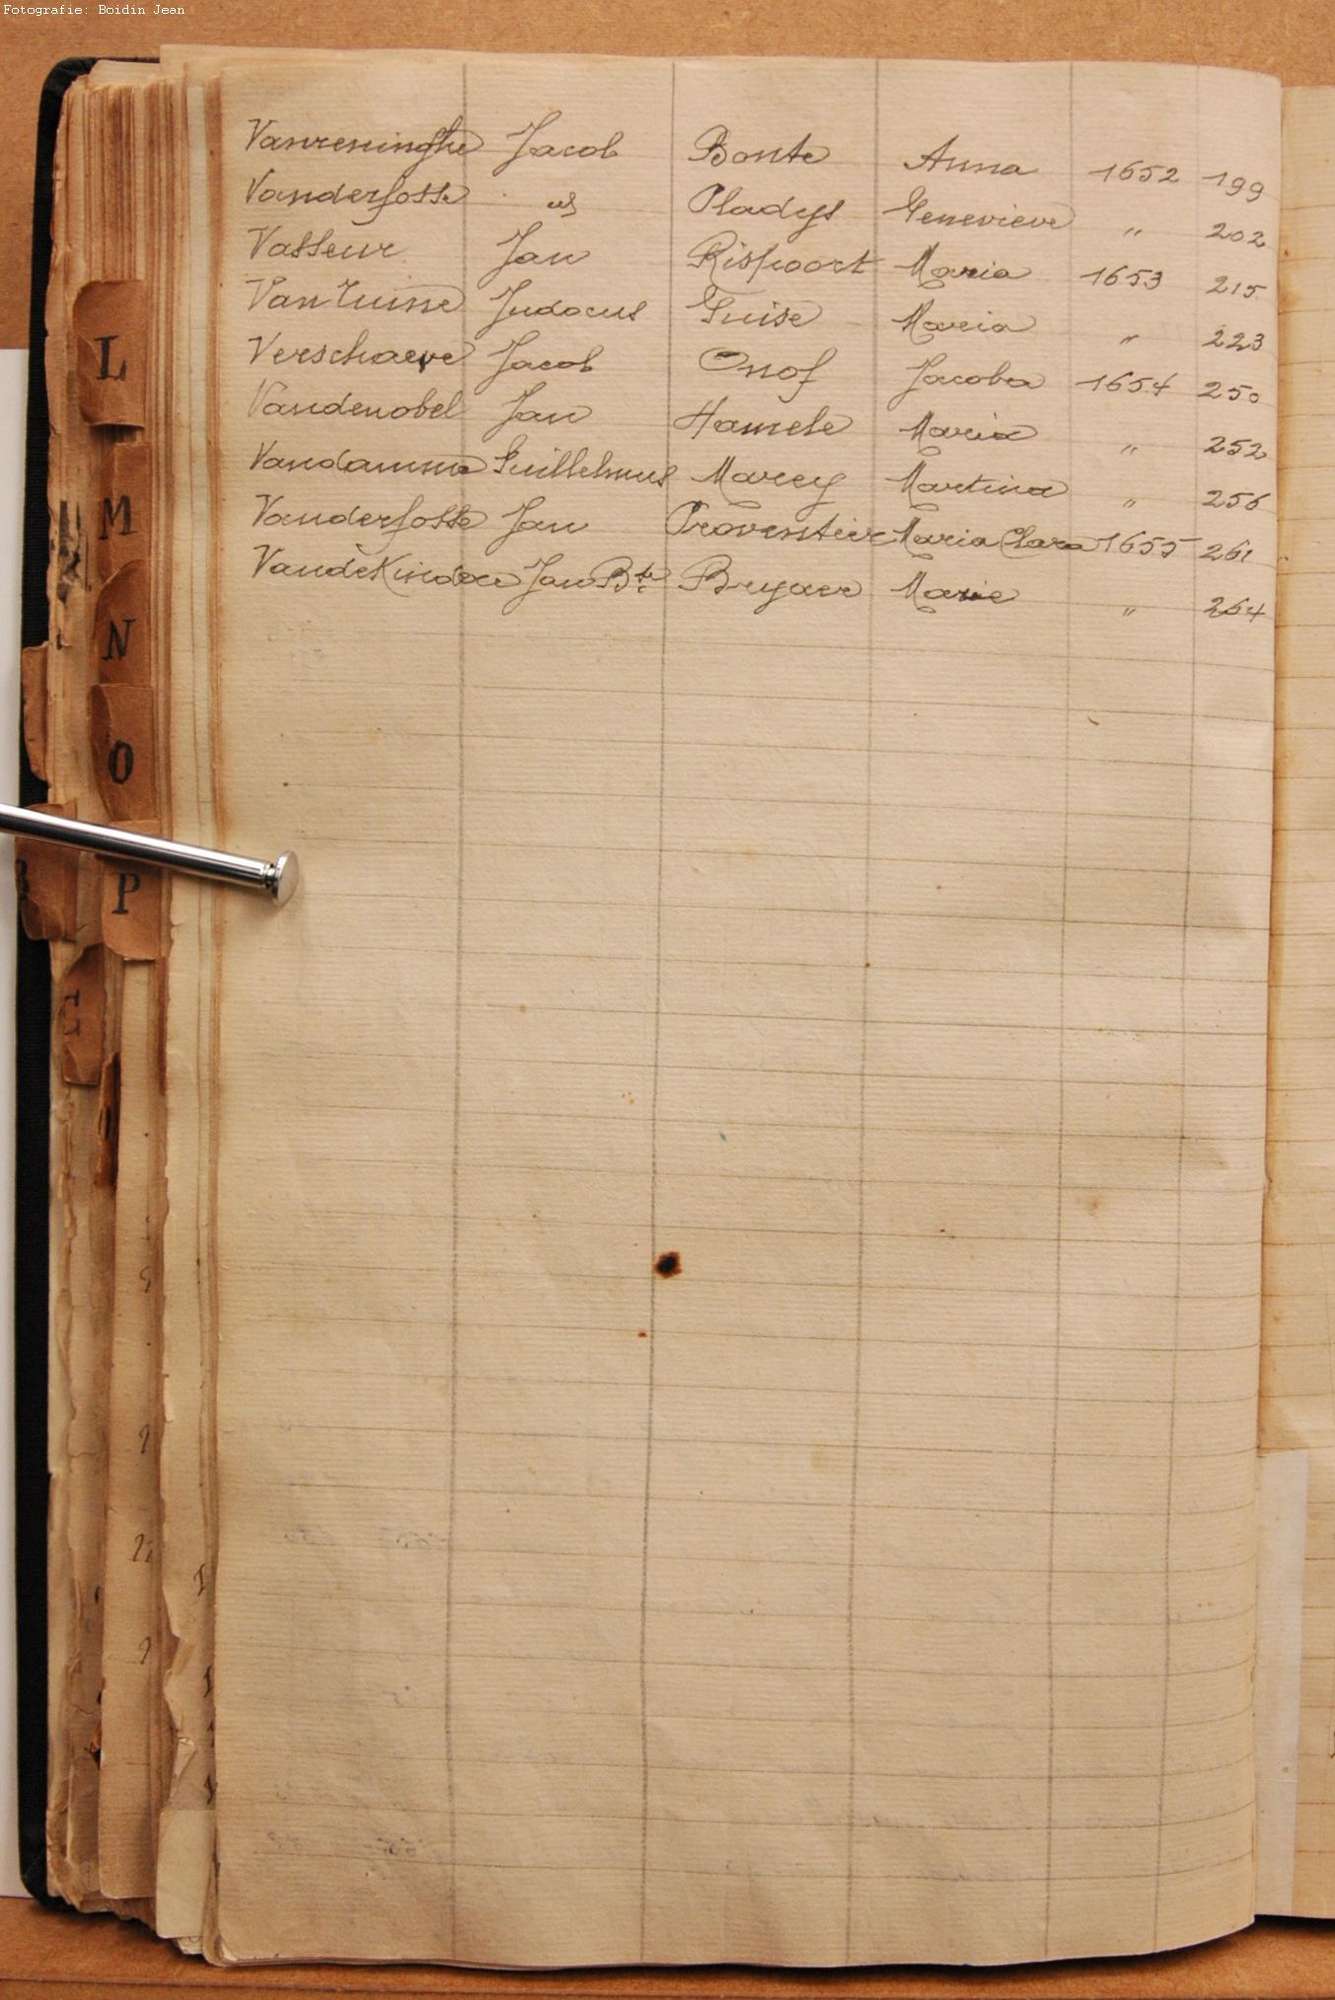 Fotografie: Boidin Jean
Vanreninghe Jacob Bonte Anna 1652 199
Vanderfosse Pladys Genevieve " 202
Vasseur Jan Rispoort Maria 1653 215
Van Tuine Judocus Guise Maria " 223
Verschaeve Jacob Onof Jacoba 1654 250
Vandenobel Jan Hamele Maria " 252
Vandamme Guillelmus Marcy Martina " 256
Vanderfosse Jan Proventier Maria Clara 1655 261
Jan Bte Bryaer Marie " 264
L
M
N
O
P